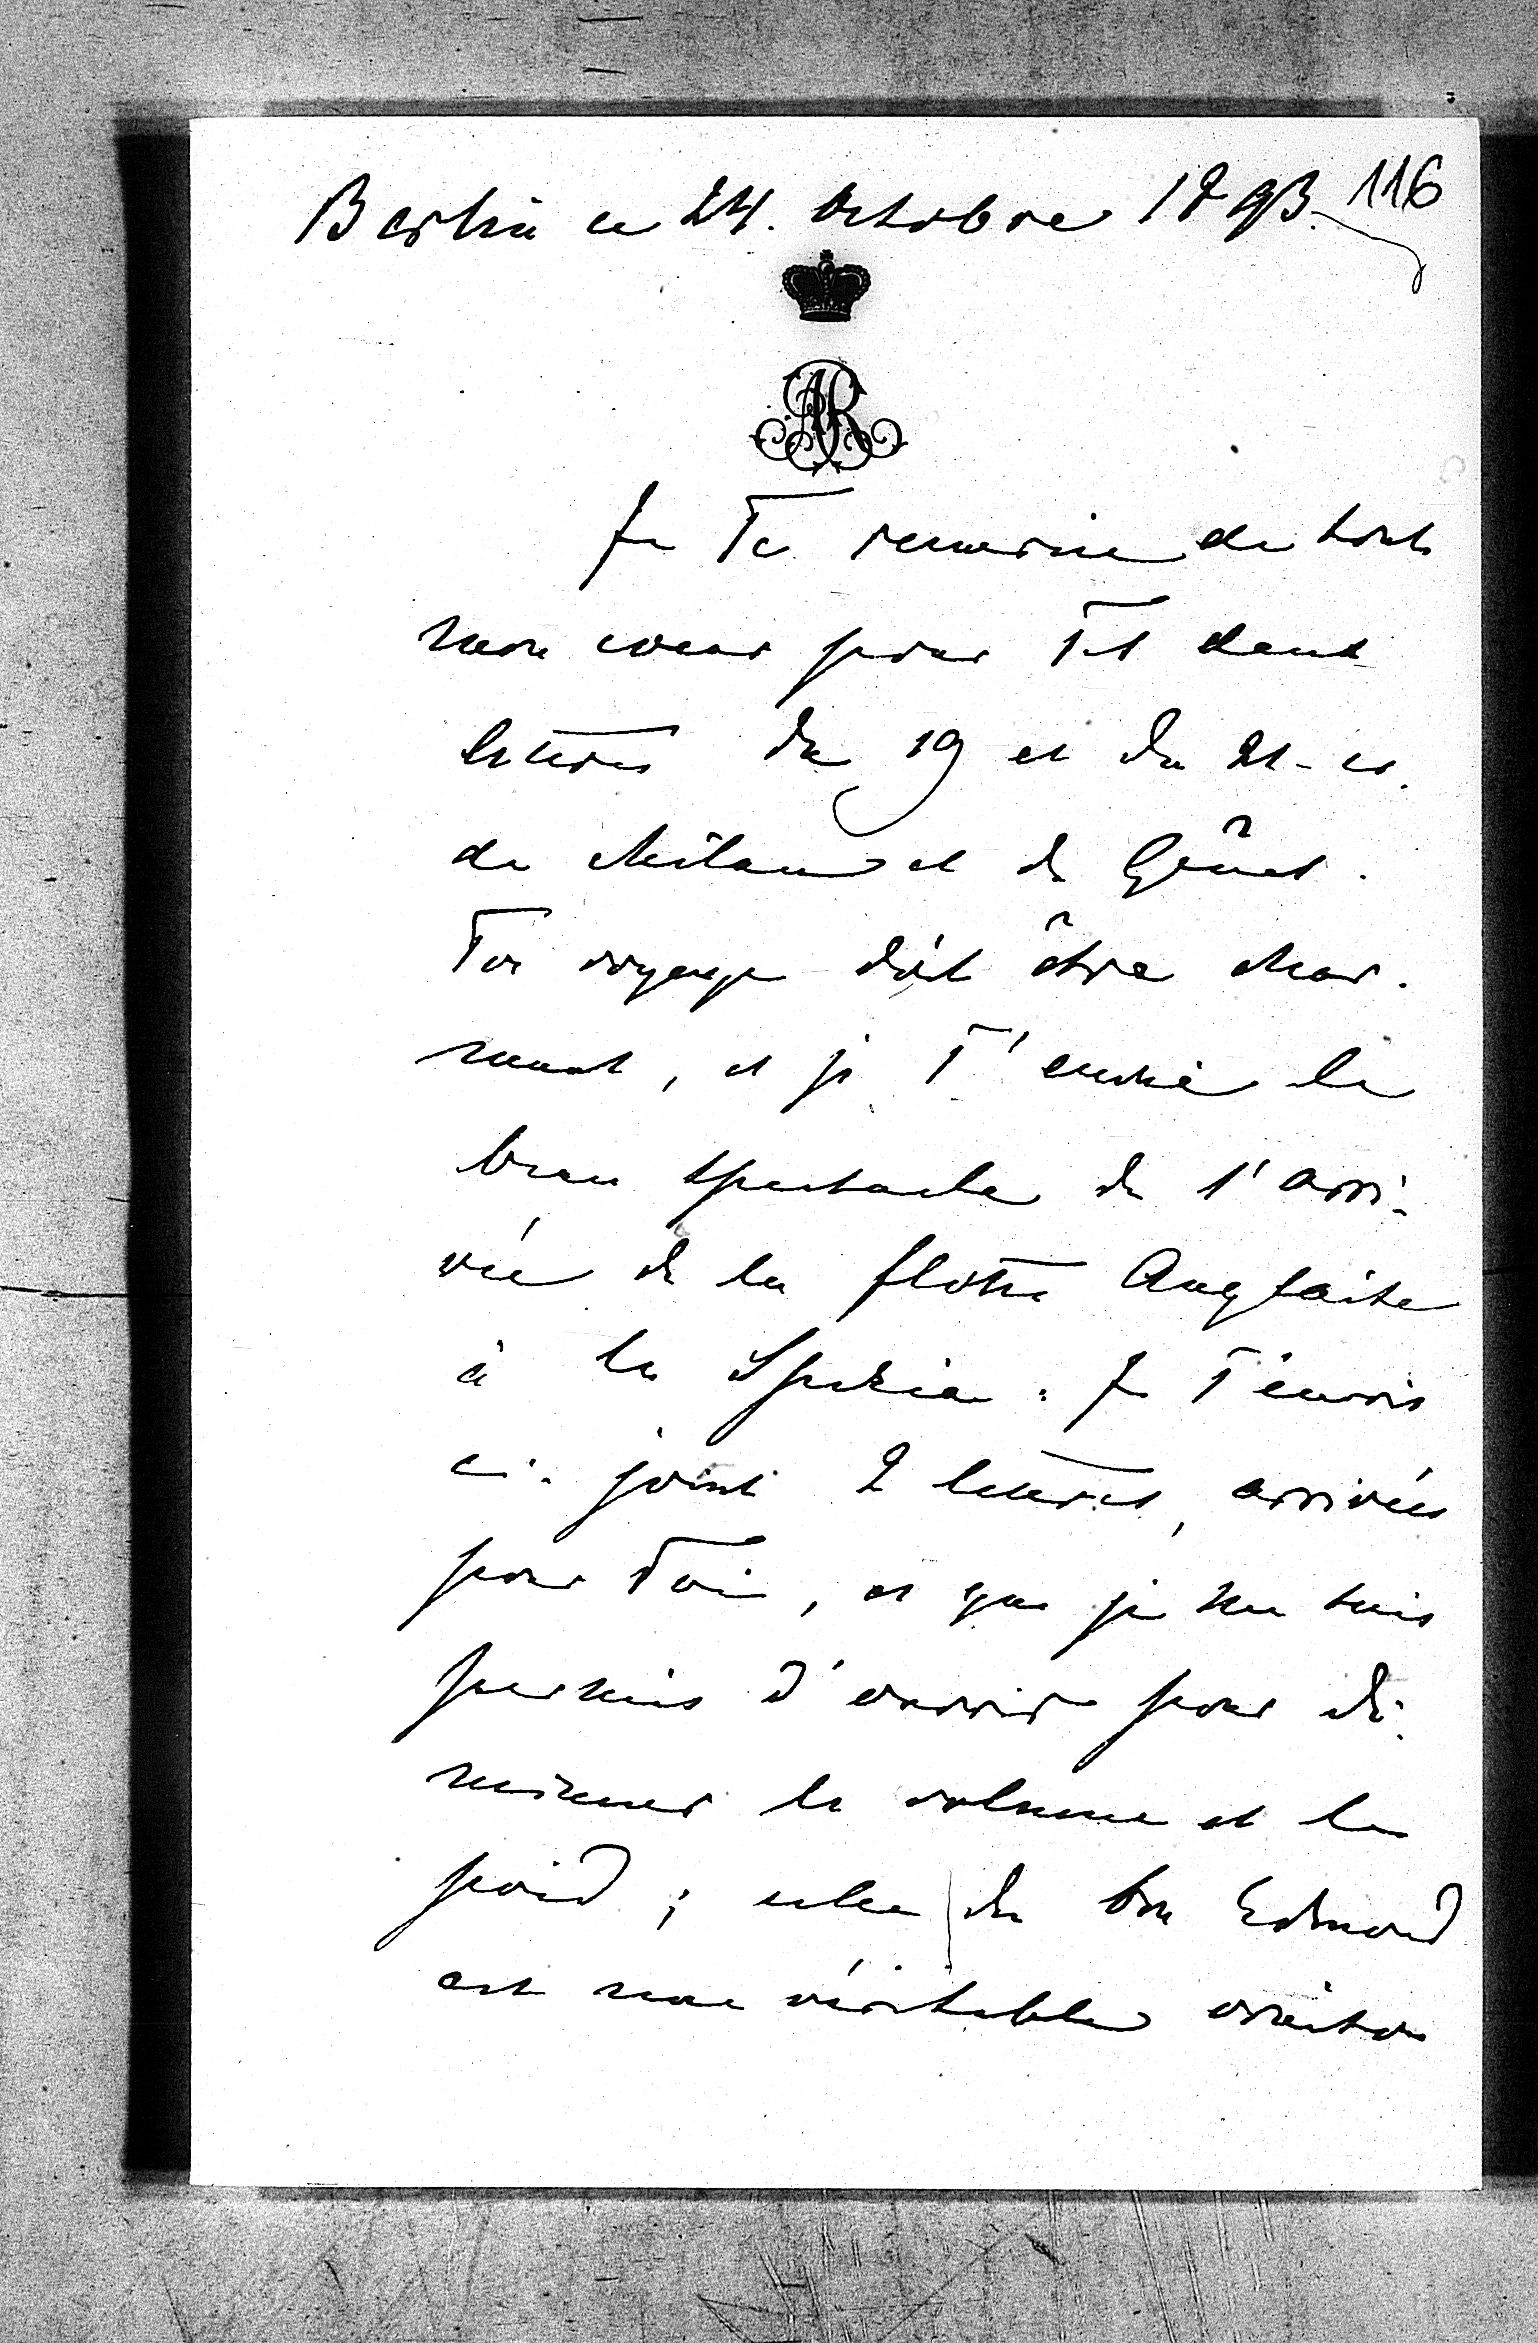 Berlin ce 24. Octobre 1893.
116
AR
Je Te remercie de tout
mon coeur pour Tes deux
lettres du 19 et du 21 - cr.
de Milan et de Gênes.
Ton voyage doit être char-
mant, et je T'envie le
beau spectacle de l'arri-
vée de la flotte Anglaise
à la Spezia. Je T'envois
ci-joint 2 lettres, arrivées
pour Toi, et que je me suis
permis d'ouvrir pour di-
minuer le volume et le
poid; celle du bon Edmond
est une véritable